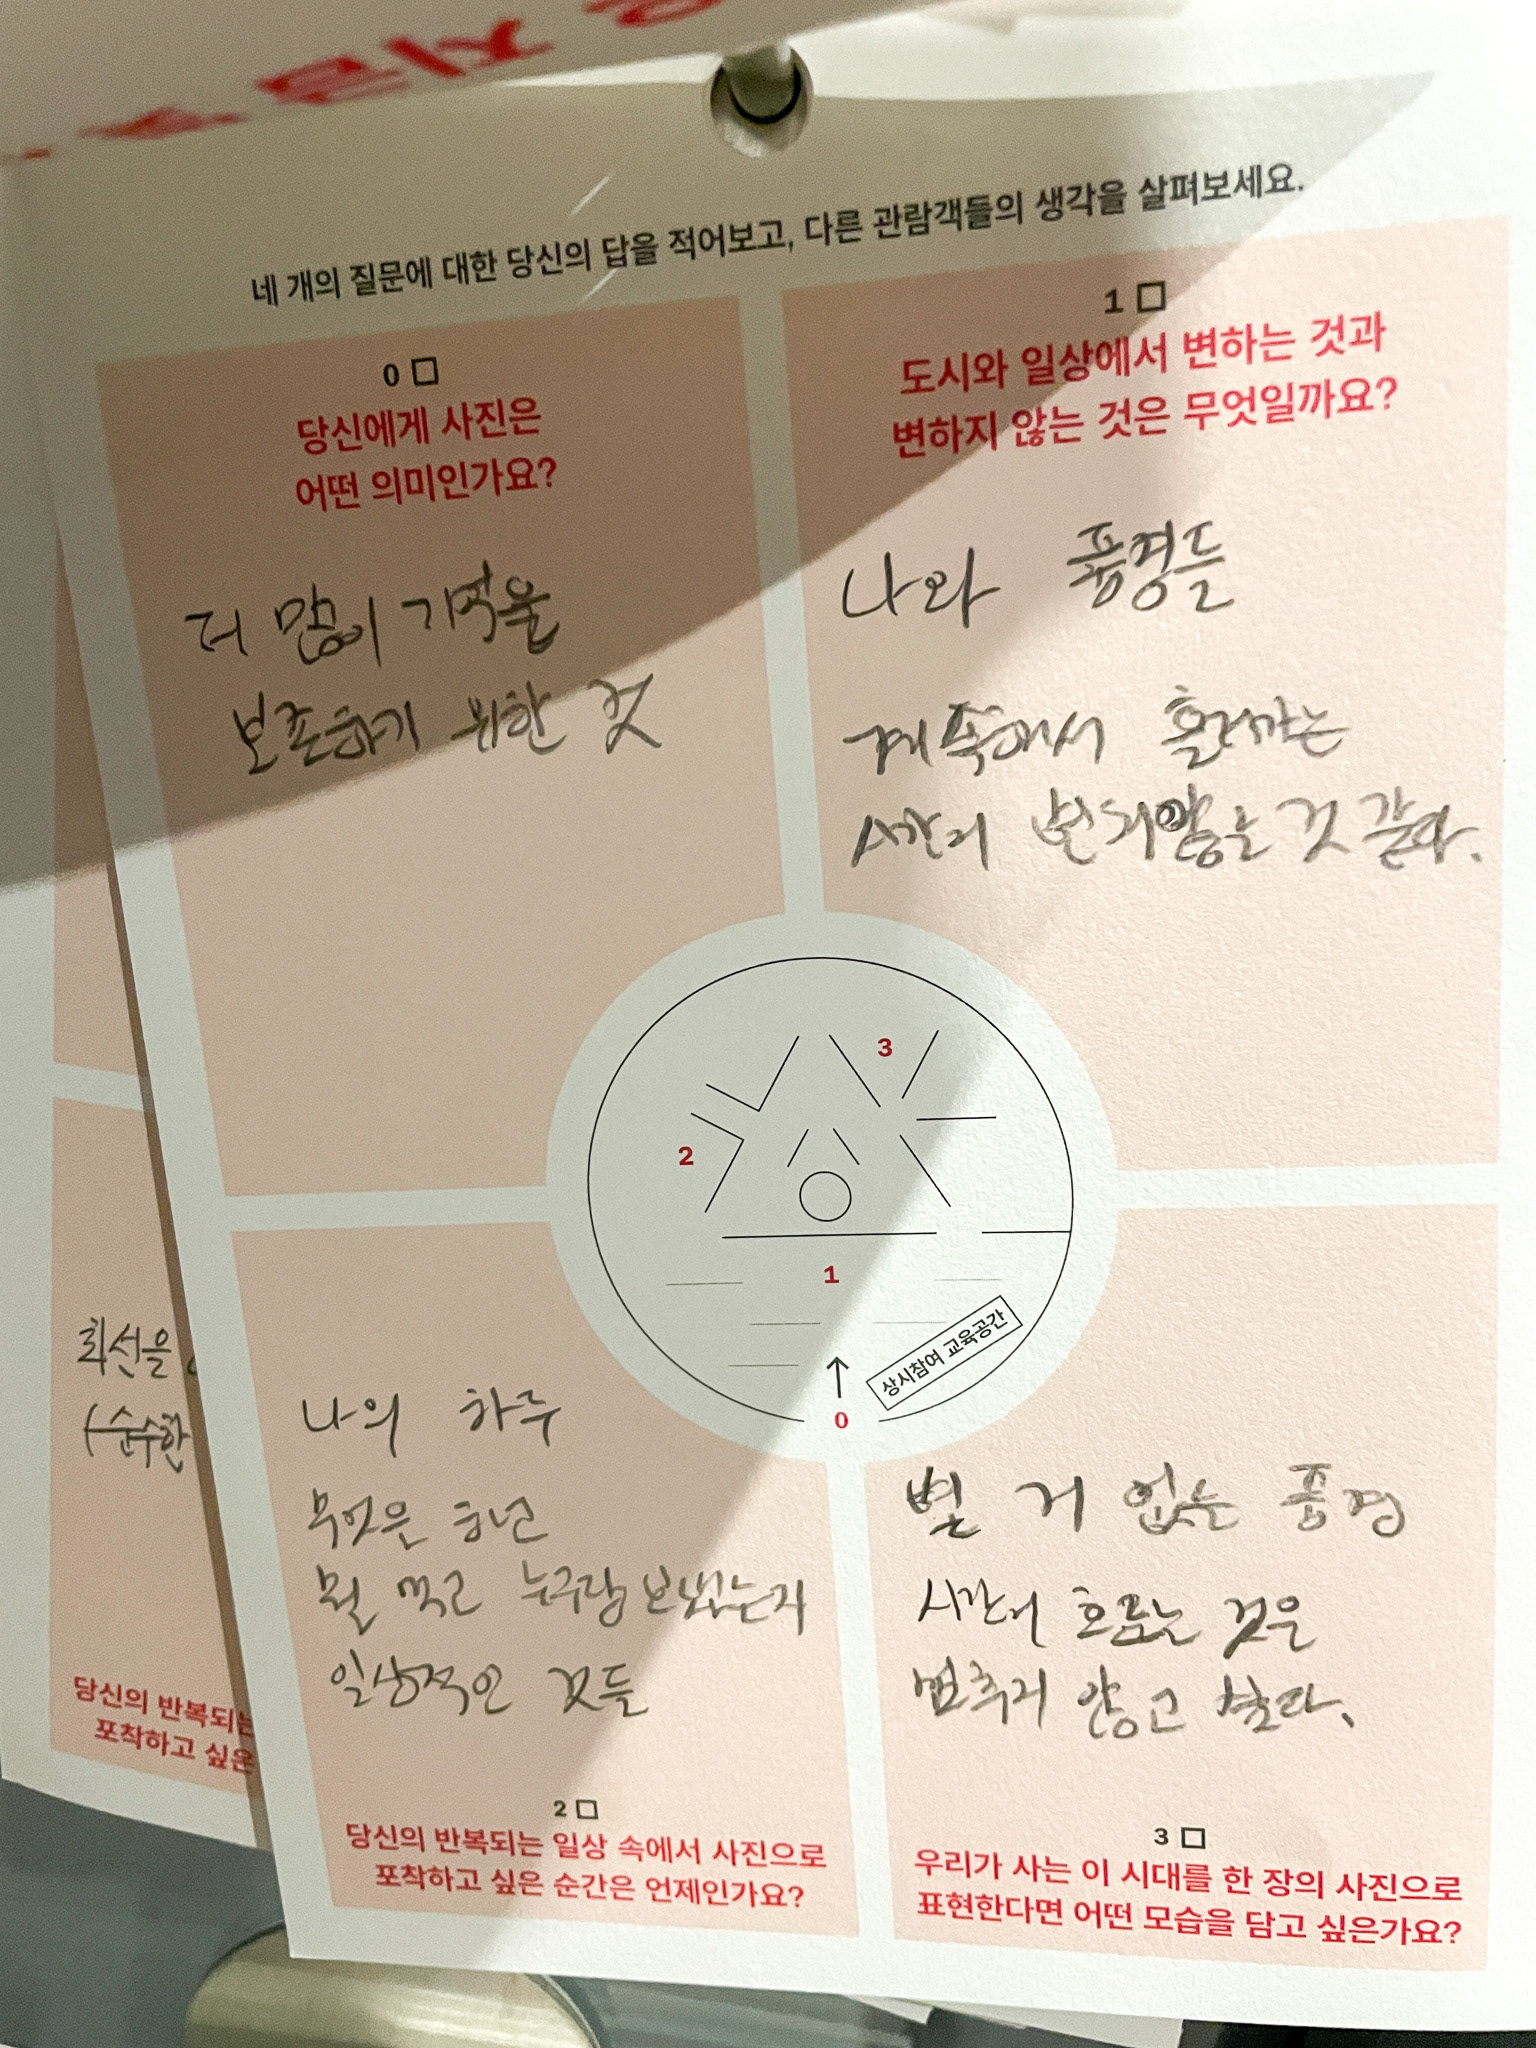 네 개의 질문에 대한 당신의 답을 적어보고, 다른 관람객들의 생각을 살펴보세요.
0
당신에게 사진은
어떤 의미인가요?
더 많이 기억을
보존하기 위한 것
1
도시와 일상에서 변하는 것과
변하지 않는 것은 무엇일까요?
나와 풍경들
계속해서 흘러가는
시간이 변하지않는 것 같다.
3
2
1
상시참여 교육공간
0
나의 하루
무엇은 하고
뭘 먹고 누구랑 보냈는지
일상적인 것들
2
당신의 반복되는 일상 속에서 사진으로
포착하고 싶은 순간은 언제인가요?
별 거 없는 풍경
시간이 흐르는 것은
멈추지 않고 싶다.
3
우리가 사는 이 시대를 한 장의 사진으로
표현한다면 어떤 모습을 담고 싶은가요?
최선을
(순수한
당신의 반복되는
포착하고 싶은